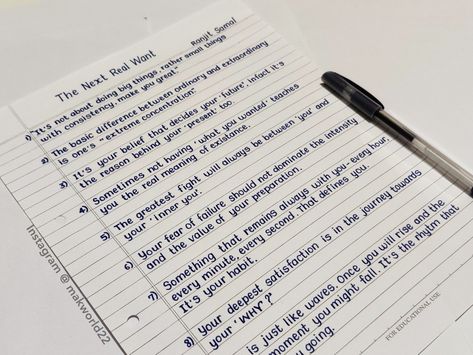 The Next Real Want
Ranjit Samal
1) It's not about doing big things, rather small things
with consistency, make you great."
2) The basic difference between ordinary and extraordinary
is one's "extreme concentration".
3) It's your belief that decides your 'future', infact it's
the reason behind your 'present' too.
4) Sometimes not having 'what you wanted' teaches
you the real meaning of existence.
5) The greatest fight will always be between 'you' and
your 'inner you'.
6) Your fear of failure should not dominate the intensity
and the value of your preparation.
7) Something that remains always with you-every hour,
every minute, every second. That defines you.
It's your habit.
8) Your deepest satisfaction is in the journey towards
your 'WHY?'
is just like waves. Once you will rise and the
moment you might fall. It's the rhythm that
you going.
FOR EDUCATIONAL USE
Instagram @ makworld22